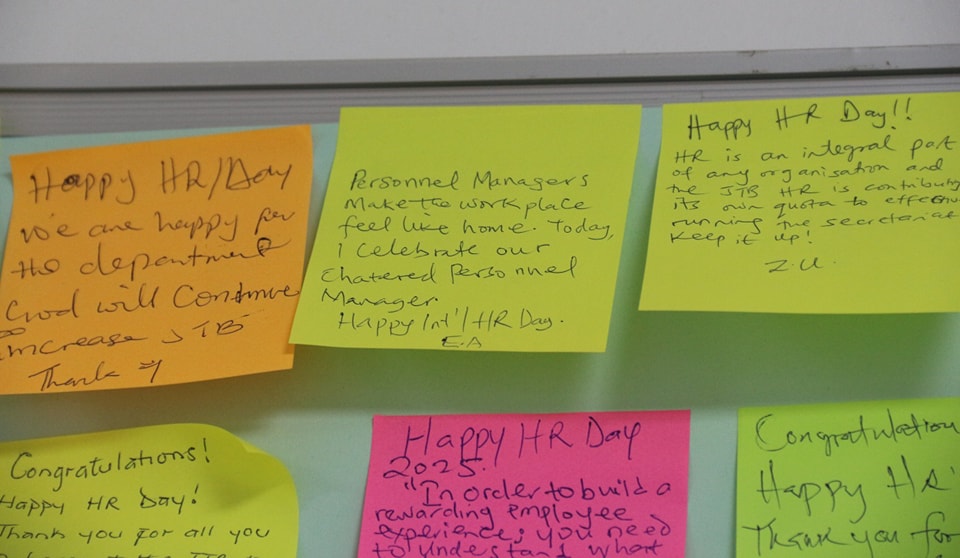 Happy HR/Day
We are happy for
the department
God will Continue
increase JTB
Thank
Personnel Managers
Make the workplace
feel like home. Today,
I Celebrate our
Chatered Personnel
Manager
Happy Int'l HR Day.
E.A
Happy HR Day!!
HR is an integral part
of any organisation and
the JTB HR is contributi
its own quota to effectiv
running the secretariat
Keep it up!
Z.U.
Congratulations!
Happy HR Day!
Thank you for all you
Happy HR Day
2025.
"In order to build a
rewarding employee
experience, you need
to understand what
Congratulation
Happy HR
Thank you for